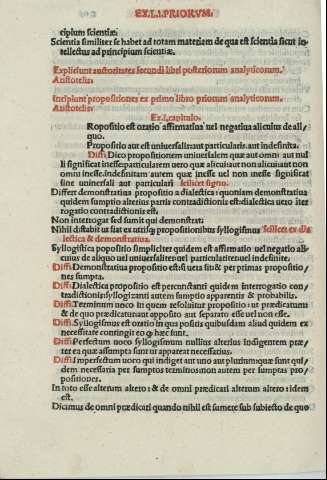 EX.I.L.PRIORVM.
cipium scientiæ.
Scientia similiter se habet ad totam materiam de qua est scientia sicut in-
tellectus ad principium scientiæ.
Expliciunt auctoritates secundi libri posteriorum analyticorum.
Aristotelis.
Incipiunt propositiones ex primo libro priorum analyticorum.
Aristotelis.
Ex.i.capitulo.
Ropositio est oratio affirmatiua uel negatiua alicuius de ali/
quo.
Propositio aut est uniuersalis: aut particularis. aut indefinita.
Diffi. Dico propositionem uniuersalem quæ aut omni aut nul
li significat inesse: particularem uero quæ alicui aut non alicui aut non
omni inesse. indefinitam autem quæ inesse uel non inesse significat
sine uniuersali aut particulari scilicet signo.
Differt demonstratiua propositio a dialectica: quoniam demonstratiua
quidem sumptio alterius partis contradictionis est: dialectica uero iter
rogatio contradictionis est.
Non interrogat sed sumit qui demonstrat:
Nihil distabit ut fiat ex utrisq; propositionibus syllogismus scilicet ex dia
lectica & demonstratiua.
Syllogistica popositio simpliciter quidem est affirmatio uel negatio ali/
cuius de aliquo uel uniuersaliter uel particulariter uel indefinite.
Diffi. Demonstratiua propositio est si uera sit & per primas propositio/
nes sumpta.
Diffi. Dialectica propositio est percunctanti quidem interrogatio con/
tradictionis: syllogizanti autem sumptio apparentis & probabilis.
Diffi. Terminum uoco in quem resoluitur propositio: ut prædicatum
& de quo prædicatur: aut apposito aut separato esse uel non esse.
Diffi. Syllogismus est oratio in qua positis quibusdam aliud quidem ex
necessitate contingit eo q hæc sunt.
Diffi. Perfectum uoco syllogismum nullius alterius indigentem præ/
ter ea quæ assumpta sunt ut appareat necessarius.
Diffi. Imperfectum uoco qui indiget aut uno aut plurimum quæ sunt qui/
dem necessaria per sumptos terminos non autem per sumptas pro/
positiones.
In toto esse alterum altero: & de omni prædicari alterum altero: idem
est.
Dicimus de omni prædicari quando nihil est sumere sub subiecto de quo